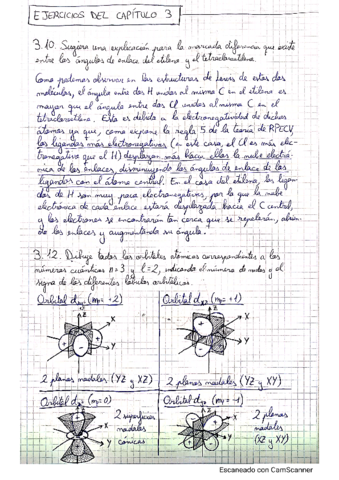 EJERCICIOS DEL CAPÍTULO 3
3.10. Sugiera una explicación para la marcada diferencia que existe
entre los ángulos de enlace del etileno y el tetracloroetileno.
Como podemos observar en las estructuras de Lewis de estas dos
moléculas, el ángulo entre dos H unidos al mismo C en el etileno es
mayor que el ángulo entre dos Cl unidos al mismo C en el
tetracloroetileno. Esto es debido a la electronegatividad de dichos
átomos ya que, como expone la regla 5 de la teoría de RPECV,
los ligandos más electronegativos (en este caso, el Cl es más elec-
tronegativo que el H) desplazan más hacia ellos la nube electró-
nica de los enlaces, disminuyendo los ángulos de enlace de los
ligandos con el átomo central. En el caso del etileno, los ligan-
dos de H son muy poco electronegativos, por lo que la nube
electrónica de cada enlace estará desplazada hacia el C central,
y los electrones se encontrarán tan cerca que se repelerán, abrien-
do los enlaces y aumentando su ángulo.
3.12. Dibuje todos los orbitales atómicos correspondientes a los
números cuánticos n=3 y l=2, indicando el número de nodos y el
signo de los diferentes lóbulos orbitálicos.
Orbital (m = +2) Orbital (m = +1)
Z X Y Z X Y
2 planos nodales (YZ y XZ) 2 planos nodales (YZ y XY)
Orbital (m=0) Orbital (m = -1)
2 superficies nodales cónicas
2 planos nodales (XZ y XY)
Escaneado con CamScanner